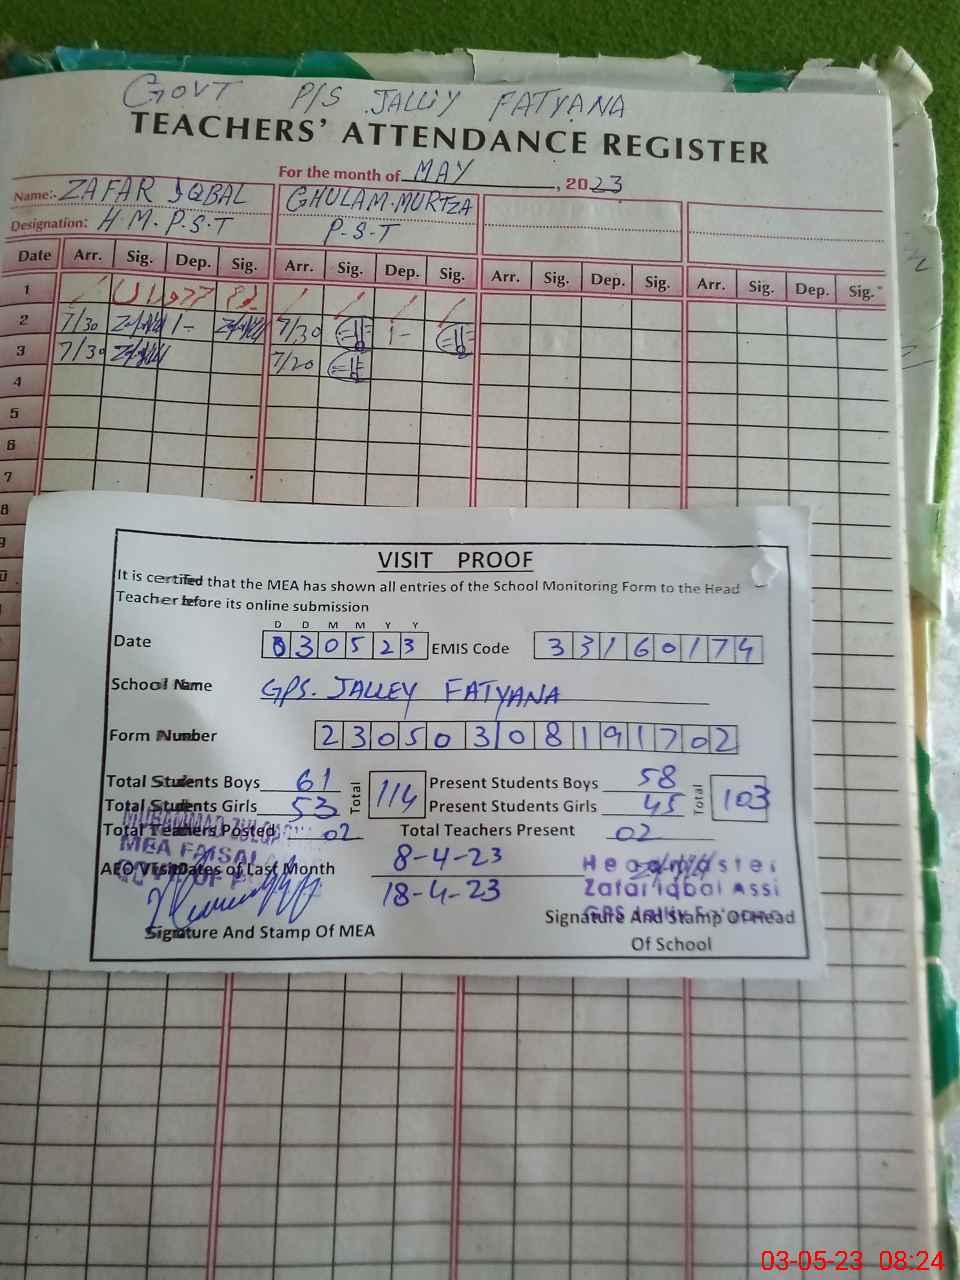 GOVT P/S JALLIY FATYANA
TEACHERS' ATTENDANCE REGISTER
For the month of MAY, 2023
Name:- ZAFAR IQBAL GHULAM MURTZA
Designation: H.M. P.S.T P-S-T
Date Arr. Sig. Dep. Sig. Arr. Sig. Dep. Sig. Arr. Sig. Dep. Sig. Arr. Sig. Dep. Sig.
1
2 7/30 1- 7/30 1-
3 7/30 7/20
4
5
6
7
8
9
VISIT PROOF
It is certified that the MEA has shown all entries of the School Monitoring Form to the Head
Teacher before its online submission
D D M M Y Y
Date 030523 EMIS Code 33160174
School Name GPS. JALLEY FATYANA
Form Number 23050308191702
Total Students Boys 61 Total 114 Present Students Boys 58 Total 103
Total Students Girls 53 Present Students Girls 45
Total Teachers Posted 02 Total Teachers Present 02
MEA FAISAL
AEO Visit Dates of Last Month 8-4-23
18-4-23
Headmaster
Zafar Iqbal Assi
GPS Jalliy
Signature And Stamp Of MEA
Signature And Stamp Of Head
Of School
03-05-23 08:24